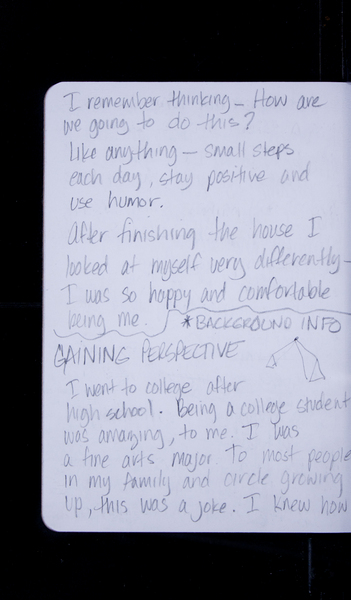 I remember thinking - How are
we going to do this?
Like anything - small steps
each day, stay positive and
use humor.
After finishing the house I
looked at myself very differently -
I was so happy and comfortable
being me.
*BACKGROUND INFO
GAINING PERSPECTIVE
I went to college after
high school. Being a college student
was amazing, to me. I was
a fine arts major. To most people
in my family and circle growing
up, this was a joke. I knew how